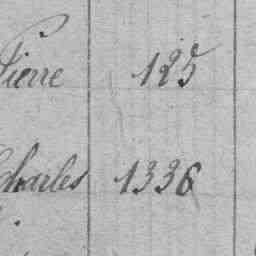 Pierre 125
Charles 1336